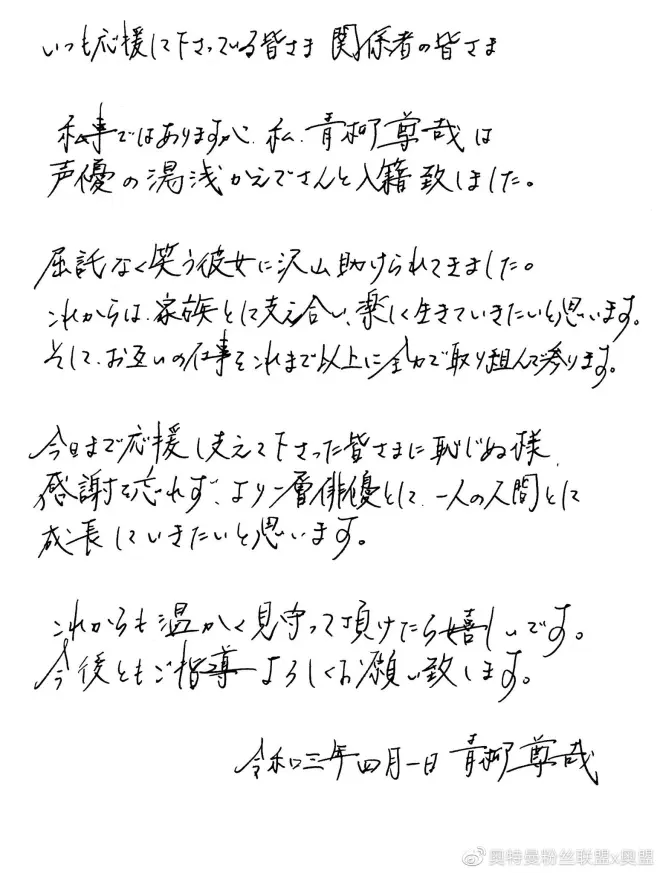 いつも応援して下さっている皆さま 関係者の皆さま
私事ではありますが、私、青柳尊哉は
声優の湯浅かえでさんと入籍致しました。
屈託なく笑う彼女に沢山助けられてきました。
これからは、家族として支え合い、楽しく生きていきたいと思います。
そして、お互いの仕事をこれまで以上に全力で取り組んで参ります。
今日まで応援し支えて下さった皆さまに恥じぬ様、
感謝を忘れず、より一層俳優として、一人の人間として
成長していきたいと思います。
これからも温かく見守って頂けたら嬉しいです。
今後ともご指導よろしくお願い致します。
令和三年四月一日 青柳尊哉
奥特曼粉丝联盟x奥盟